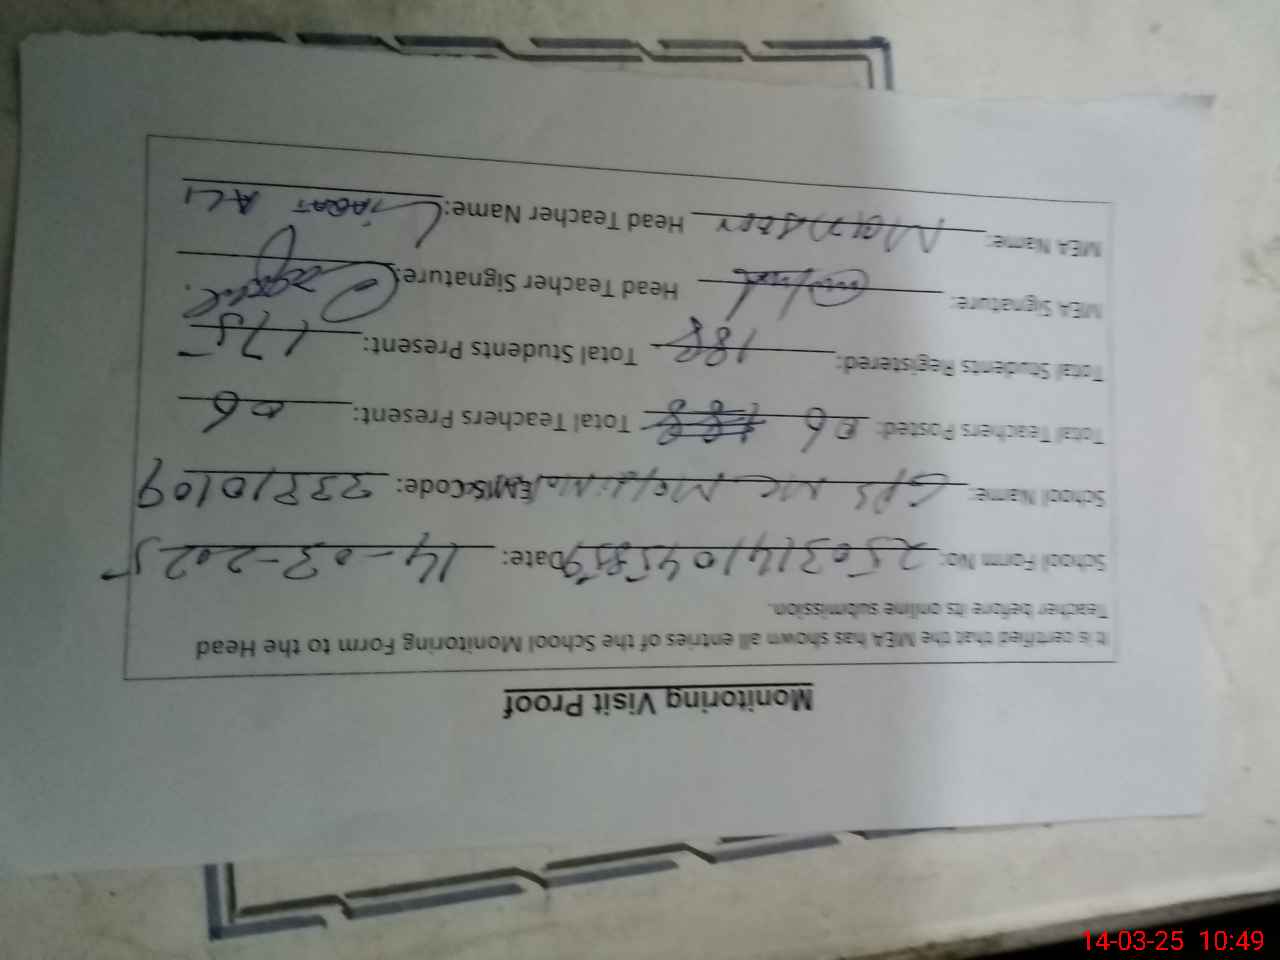 Monitoring Visit Proof
It is certified that the MEA has shown all entries of the School Monitoring Form to the Head
Teacher before its online submission.
School Form No: 2503141045859 Date: 14-03-2025
School Name: GPS EMIS Code:
Total Teachers Posted: 06 Total Teachers Present: 06
Total Students Registered: 188 Total Students Present: 175
MEA Signature: Head Teacher Signature:
MEA Name: Head Teacher Name: LIAQAT ALI
14-03-25 10:49